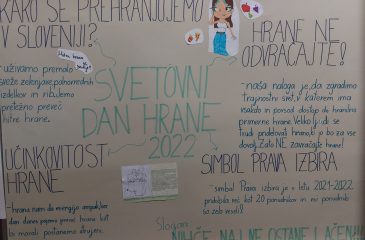 KAKO SE PREHRANJUJEMO
V SLOVENIJI?
uživamo premalo
sveže zelenjave, pahovnih
izdelkov in ribujemo
pretežno preveč
hitre hrane.
HRANE NE
ODVRAČAJTE!
naša naloga je, da zgradimo
trajnostni svet, v katerem ima
vsakdo in povsod dostop do hranilno
primerne hrane. Veliko ljudi se
trudi pridelovati hrano, ki bo za vse
dovolj, zato NE zavračajte hrane!
SVETOVNI
DAN HRANE
2022
UČINKOVITOST
HRANE
hrana nam da energijo
dan danes pojemo preveč hrane kot
bi morali postanemo
SIMBOL PRAVA IZBIRA
simbol Prava izbira je v letu 2021-2022
pridobila več kot 20 ponudnikov
so zelo veseli!
Slogan:
NIHČE NAJ NE OSTANE LAČEN!